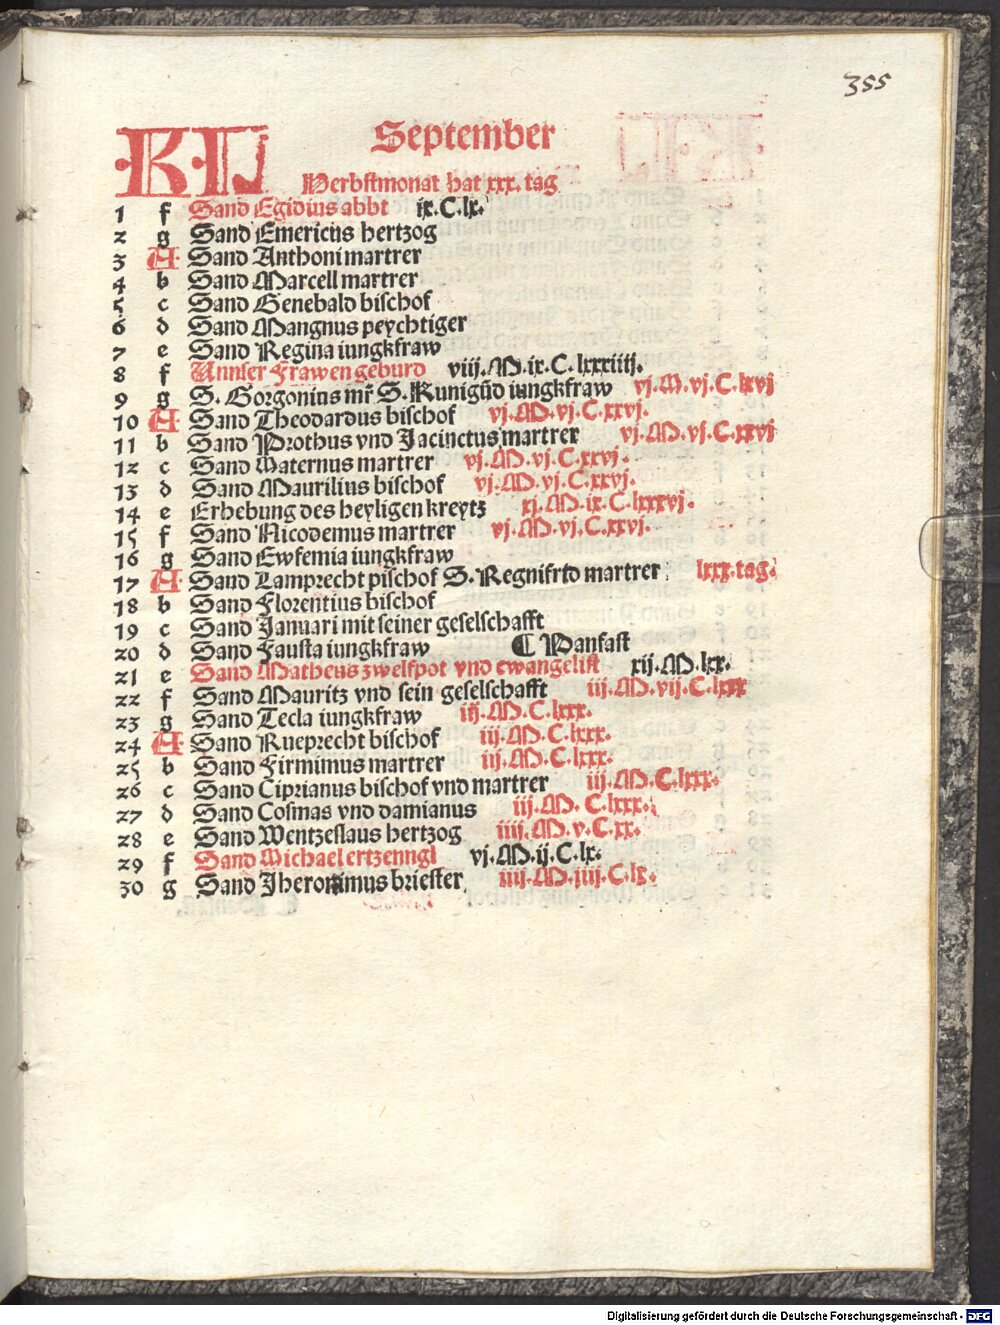 355
KL September
Herbstmonat hat xxx. tag
1 f Sand Egidius abbt ix.C.lx.
2 g Sand Emericus hertzog
3 A Sand Anthoni martrer
4 b Sand Marcell martrer
5 c Sand Genebald bischof
6 d Sand Mangnus peychtiger
7 e Sand Regina iungkfraw
8 f Unnser frawen geburd viij.M.ix.C.lxxxiiij.
9 g S. Gorgonius mr̄ S. Kunigūd iungkfraw vj.M.vj.C.lxvj
10 A Sand Theodardus bischof vj.M.vj.C.xxvj.
11 b Sand Prothus vnd Jacinctus martrer vj.M.vj.C.xxvj
12 c Sand Maternus martrer vj.M.vj.C.xxvj.
13 d Sand Maurilius bischof vj.M.vj.C.xxvj.
14 e Erhebung des heyligen kreytz xj.M.ix.C.lxxxvj.
15 f Sand Nicodemus martrer vj.M.vj.C.xxvj.
16 g Sand Ewfemia iungkfraw
17 A Sand Lamprecht pischof S. Regnifrid martrer lxxx.tag.
18 b Sand Florentius bischof
19 c Sand Januari mit seiner geselschafft
20 d Sand Fausta iungkfraw ¶ Panfast
21 e Sand Matheus zwelfpot vnd ewangelist xij.M.lxx.
22 f Sand Mauritz vnd sein geselschafft iij.M.vij.C.lxxx
23 g Sand Tecla iungkfraw iij.M.C.lxxx.
24 A Sand Rueprecht bischof iij.M.C.lxxx.
25 b Sand Firmimus martrer iij.M.C.lxxx.
26 c Sand Ciprianus bischof vnd martrer iij.M.C.lxxx.
27 d Sand Cosmas vnd damianus iij.M.C.lxxx.
28 e Sand Wentzeslaus hertzog iiij.M.v.C.xx.
29 f Sand Michael ertzenngl vj.M.ij.C.lx.
30 g Sand Jheronimus briester iiij.M.iiij.C.lx.
Digitalisierung gefördert durch die Deutsche Forschungsgemeinschaft - DFG